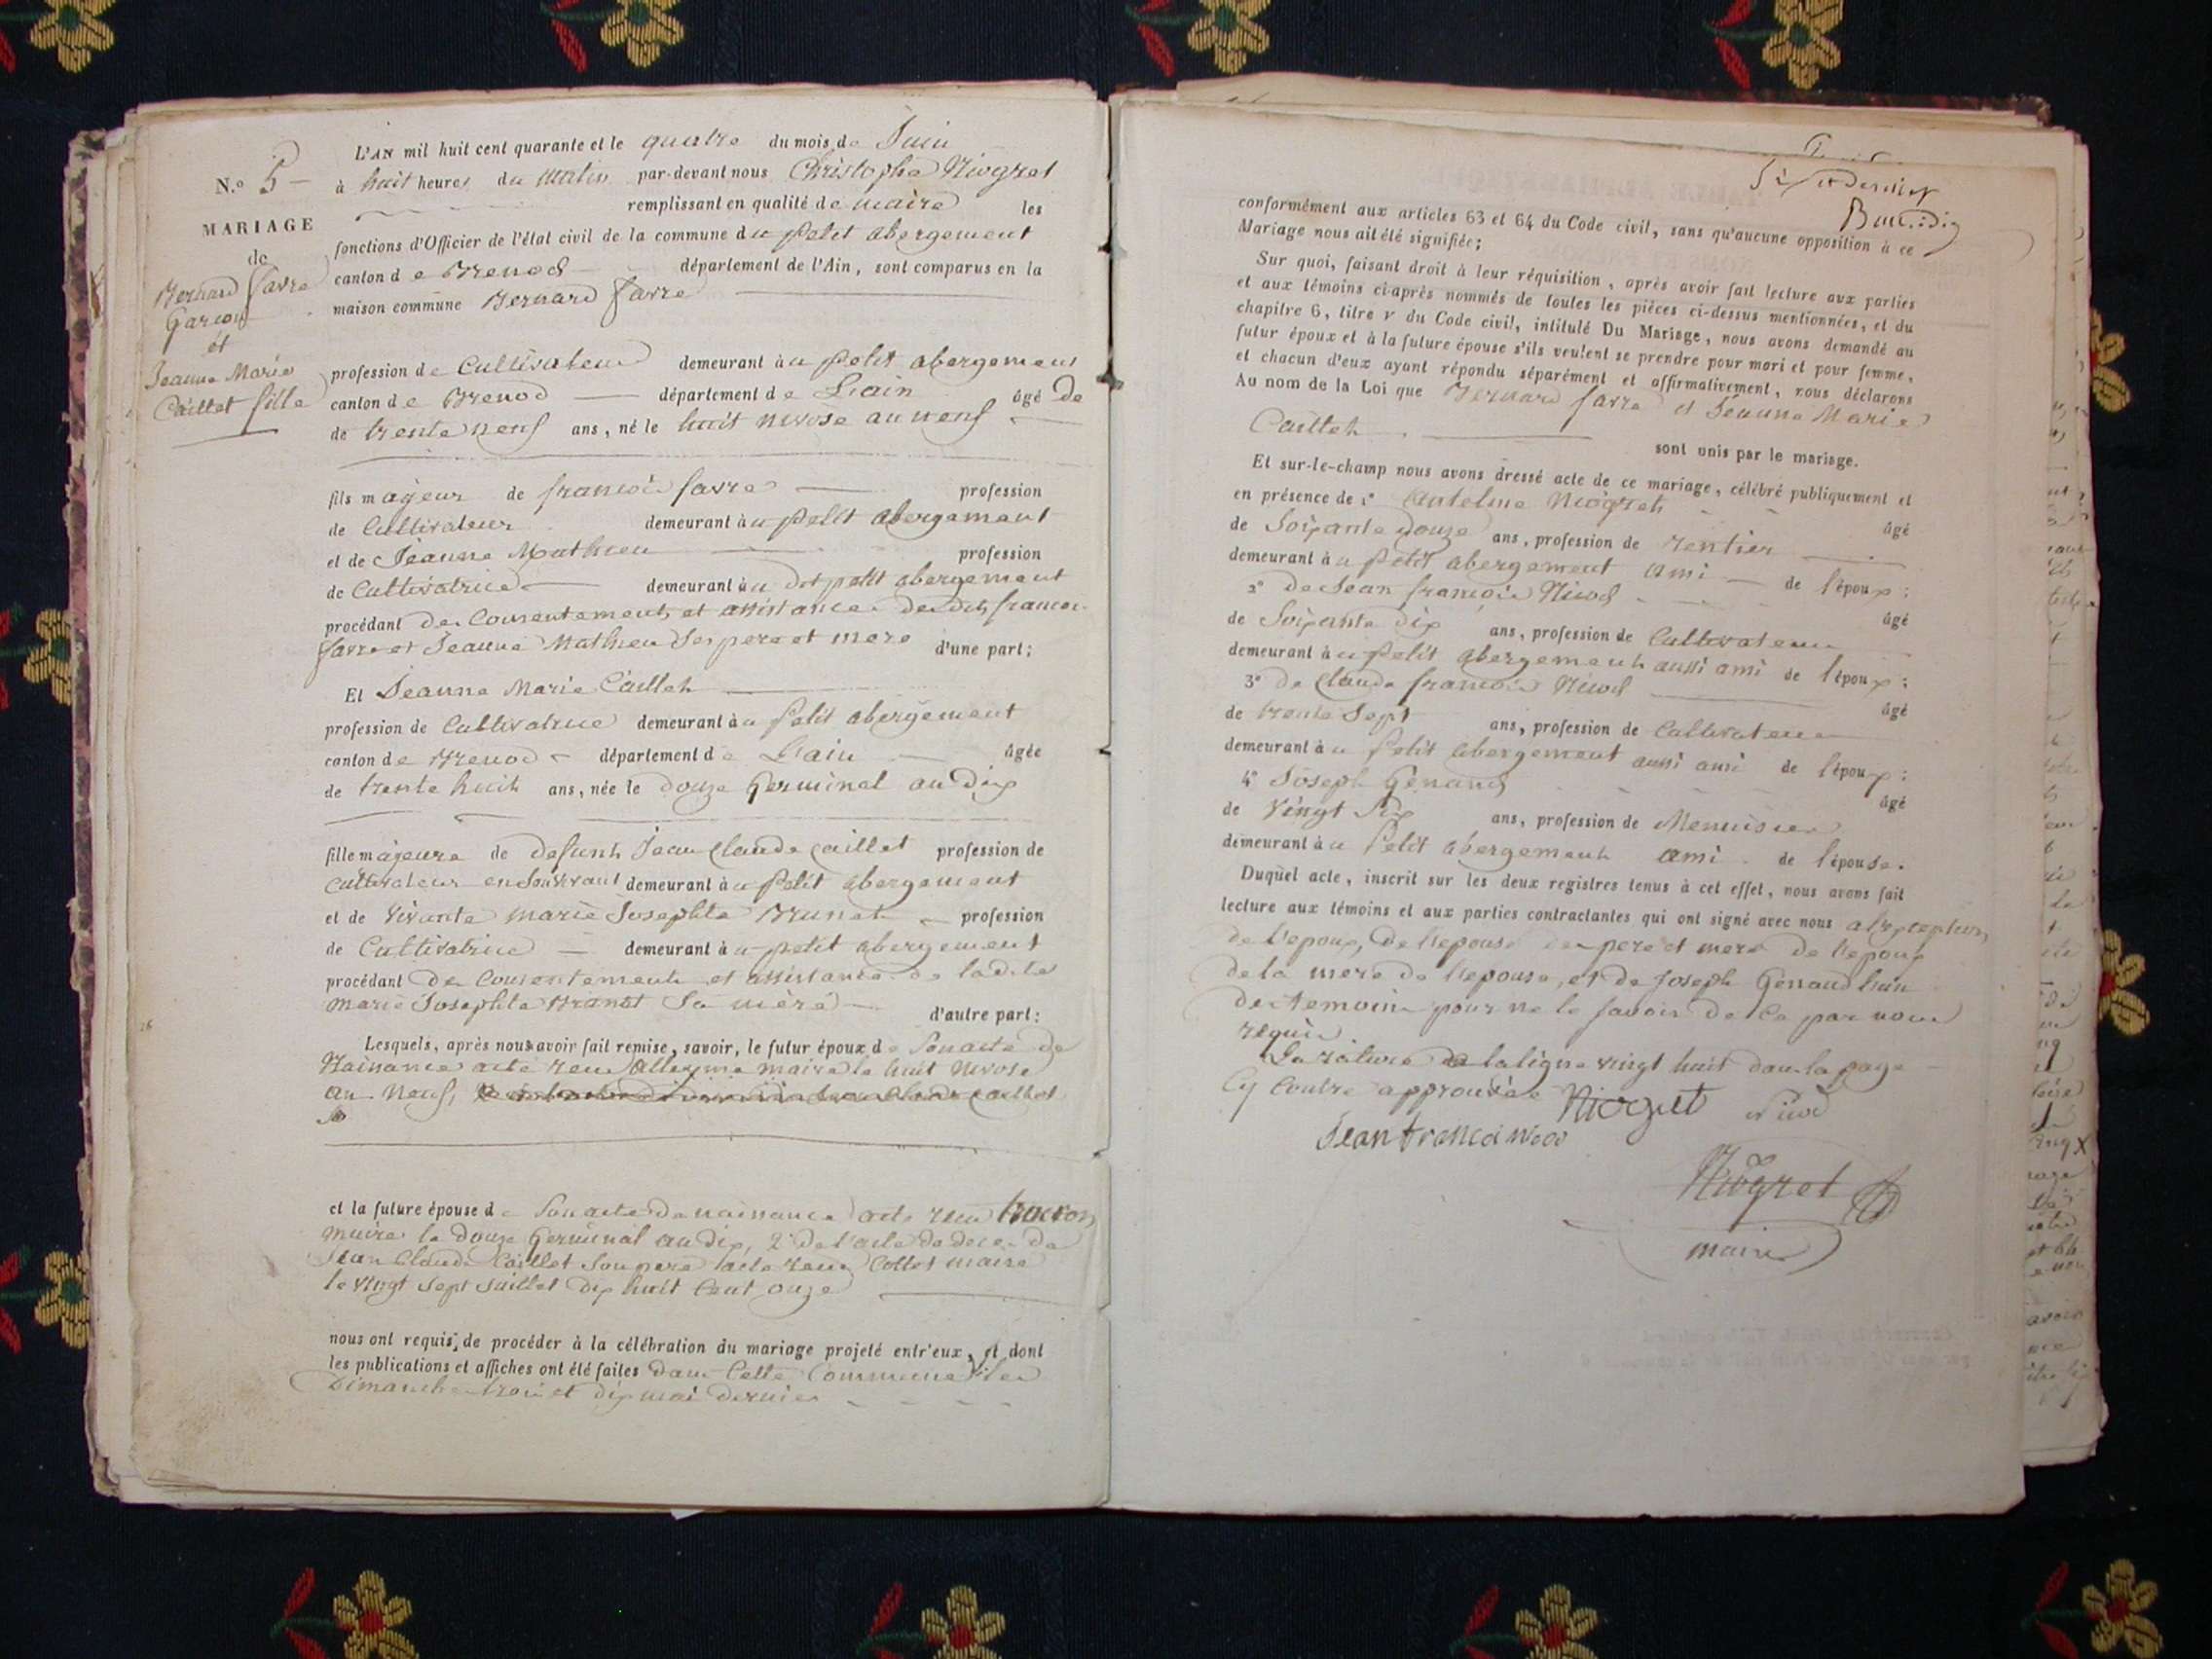 N.o 5
MARIAGE
de
Bernard favre
Garçon
et
Jeanne Marie
Caillet fille
L'AN mil huit cent quarante et le quatre du mois de Juin
à huit heures du matin par-devant nous Christophe Niogret
remplissant en qualité de maire les
fonctions d'Officier de l'état civil de la commune du petit abergement
canton de Brenod département de l'Ain, sont comparus en la
maison commune Bernard favre
profession de Cultivateur demeurant au petit abergement
canton de Brenod département de L'ain âgé de
de trente neuf ans, né le huit nivose an neuf
fils majeur de francois favre profession
de Cultivateur demeurant au petit abergement
et de Jeanne Mathieu profession
de Cultivatrice demeurant au dit petit abergement
procédant du Consentement et assistance desdits francois
favre et Jeanne Mathieu Ses pere et mere d'une part;
Et Jeanne Marie Caillet
profession de Cultivatrice demeurant au petit abergement
canton de Brenod département de L'ain âgée
de trente huit ans, née le douze Germinal an Dix
fille majeure de defunt Jean Claude Caillet profession de
Cultivateur en Son vivant demeurant au petit abergement
et de vivante Marie Josephte Brunet profession
de Cultivatrice demeurant au petit abergement
procédant du Consentement et assistance de ladite
Marie Josephte Brunet Sa mère d'autre part;
Lesquels, après nous avoir fait remise, savoir, le futur époux de Son acte de
Naissance acte recu maire le huit Nivose
an Neuf,
et la future épouse de Son acte de naissance acte recu
maire le douze Germinal an dix, 2° de l'acte de deces de
Jean Claude Caillet Son pere acte recu Collet maire
le vingt Sept Juillet dix huit Cent onze
nous ont requis, de procéder à la célébration du mariage projeté entr'eux, et dont
les publications et affiches ont été faites dans Cette Commune les
Dimanche trois et dix mai dernier
conformément aux articles 63 et 64 du Code civil, sans qu'aucune opposition à ce
Mariage nous ait été signifiée;
Sur quoi, faisant droit à leur réquisition, après avoir fait lecture aux parties
et aux témoins ci-après nommés de toutes les pièces ci-dessus mentionnées, et du
chapitre 6, titre V du Code civil, intitulé Du Mariage, nous avons demandé au
futur époux et à la future épouse s'ils veulent se prendre pour mari et pour femme,
et chacun d'eux ayant répondu séparément et affirmativement, nous déclarons
Au nom de la Loi que Bernard favre et Jeanne Marie
Caillet
sont unis par le mariage.
Et sur-le-champ nous avons dressé acte de ce mariage, célébré publiquement et
en présence de 1° Antelme Niogret âgé
de Soixante douze ans, profession de rentier
demeurant au petit abergement ami de l'époux;
2° de Jean francois Nivod âgé
de Soixante Dix ans, profession de Cultivateur
demeurant au petit abergement aussi ami de l'époux;
3° de Claude francois Nivod âgé
de trente Sept ans, profession de Cultivateur
demeurant au petit abergement aussi ami de l'époux;
4° Joseph Genand âgé
de vingt Six ans, profession de Menuisier
demeurant au petit abergement ami de l'épouse.
Duquel acte, inscrit sur les deux registres tenus à cet effet, nous avons fait
lecture aux témoins et aux parties contractantes qui ont signé avec nous à l'exception
de l'epoux, de l'epouse des pere et mere de l'epoux
de la mere de l'epouse, et de Joseph Genand l'un
des temoins pour ne le savoir de Ce par nous
requis
La rature de la ligne vingt huit dans la page
Cy Contre approuvée Niogret Nivod
Jean francoi Nivod
Niogret
maire